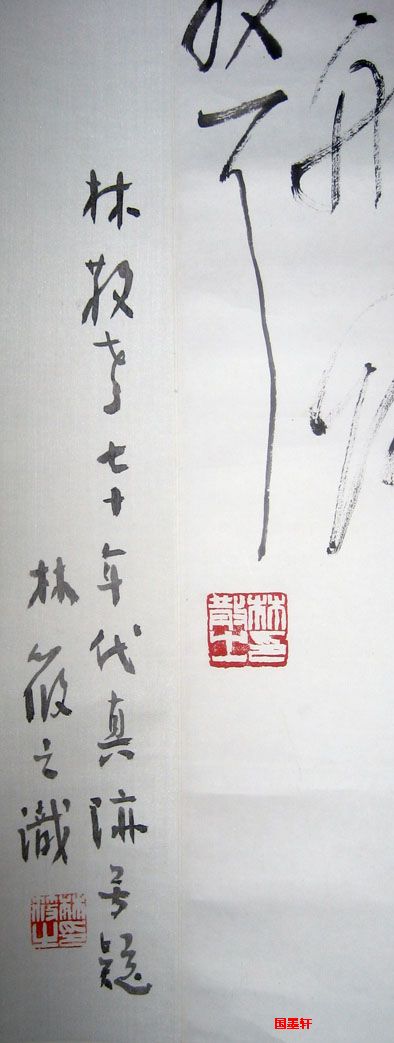 散耳
林散老七十年代真跡无疑
林筱之識
林印散之
林印筱之
国墨轩